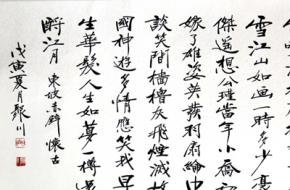 雪江山如画一時多少
傑遥想公瑾當年小喬
嫁了雄姿英發羽扇綸巾
談笑間檣櫓灰飛煙滅故
國神遊多情應笑我早
生華髮人生如夢一樽還
酹江月 東坡赤壁懷古
戊寅夏月